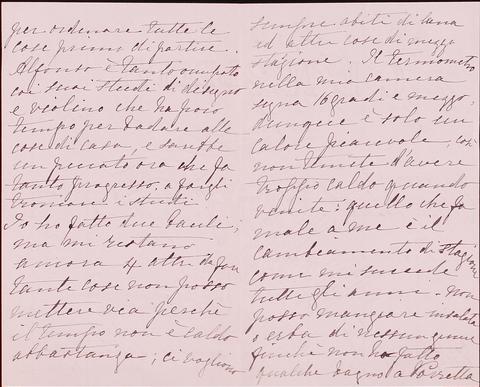 per ordinare tutte le
cose prima di partire.
Alfonso è tanto occupato
coi suoi studi di disegno
e violino che ha poco
tempo per badare alle
cose di casa, e sarebbe
un peccato ora che fa
tanto progresso, a fargli
troncare i studi
Io ho fatto due bauli,
ma mi restano
ancora 4 altri da far
tante cose non posso
mettere via perchè
il tempo non è caldo
abbastanza; ci vogliono
sempre abiti di lana
ed altre cose di mezza
stagione. Il termometro
nella mia camera
segna 16 gradi e mezzo,
dunque è solo un
calore piacevole, così
non temete d'avere
troppo caldo quando
venite: quello che fa
male a me è il
cambiamento di stagione
come mi succede
tutti gli anni. Non
posso mangiare insalata
o erba di nessun genere
finchè non ho fatto
qualche bagno a Porretta